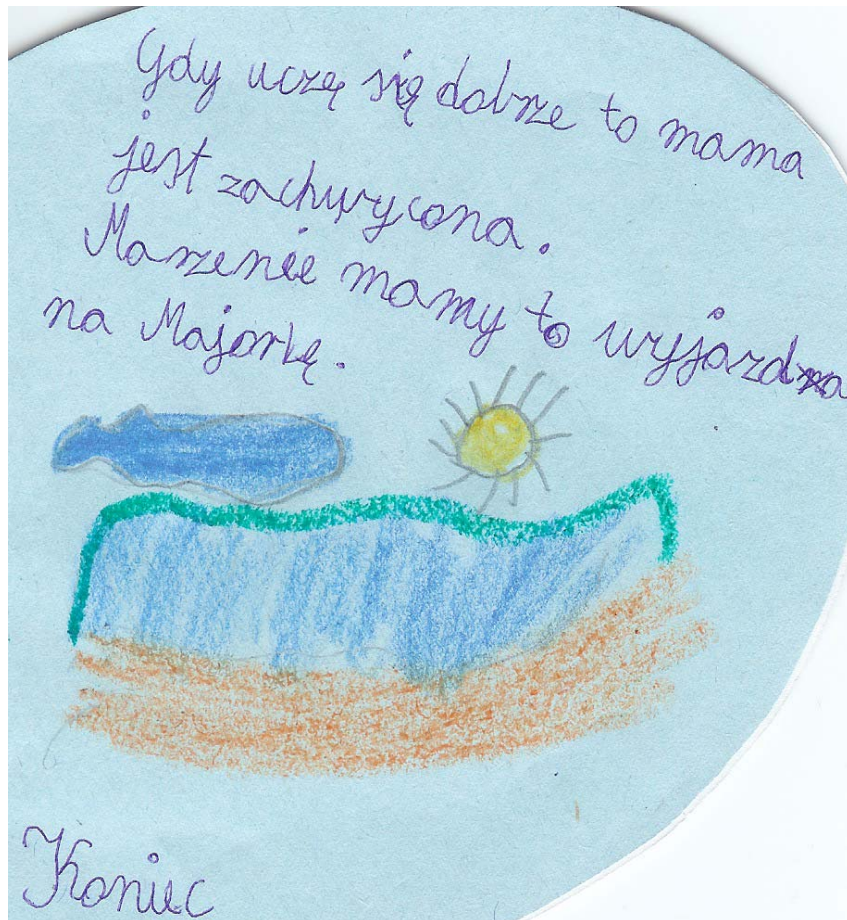 Gdy uczę się dobrze to mama
jest zachwycona.
Marzenie mamy to wyjazd
na Majorkę.
Koniec